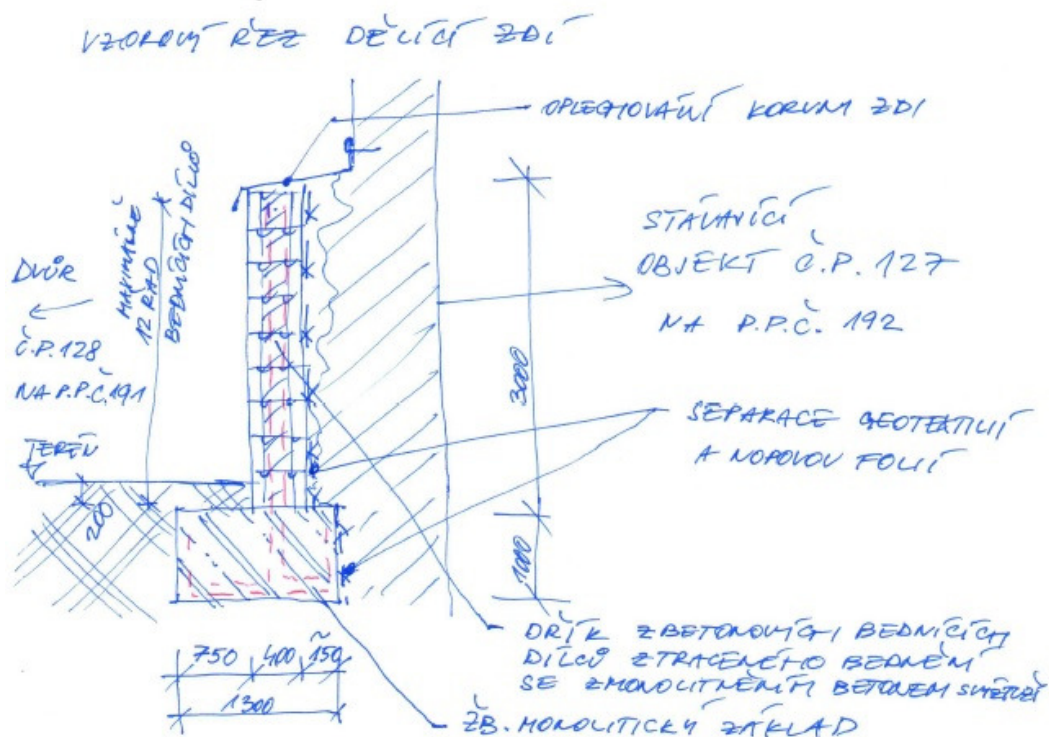 VZOROVÝ ŘEZ DĚLÍCÍ ZDÍ
OPLECHOVÁNÍ KORUNY ZDI
MAXIMÁLNĚ
12 ŘAD
BEDNÍCÍCH DÍLCŮ
DVŮR
Č.P. 128
NA P.P.Č. 191
TERÉN
200
STÁVAJÍCÍ
OBJEKT Č.P. 127
NA P.P.Č. 192
3000
SEPARACE GEOTEXTILIÍ
A NOPOVOU FOLIÍ
1000
DŘÍK Z BETONOVÝCH BEDNÍCÍCH
DÍLCŮ ZTRACENÉHO BEDNĚNÍ
SE ZMONOLITNĚNÍM BETONEM
750 400 150
1300
ŽB. MONOLITICKÝ ZÁKLAD